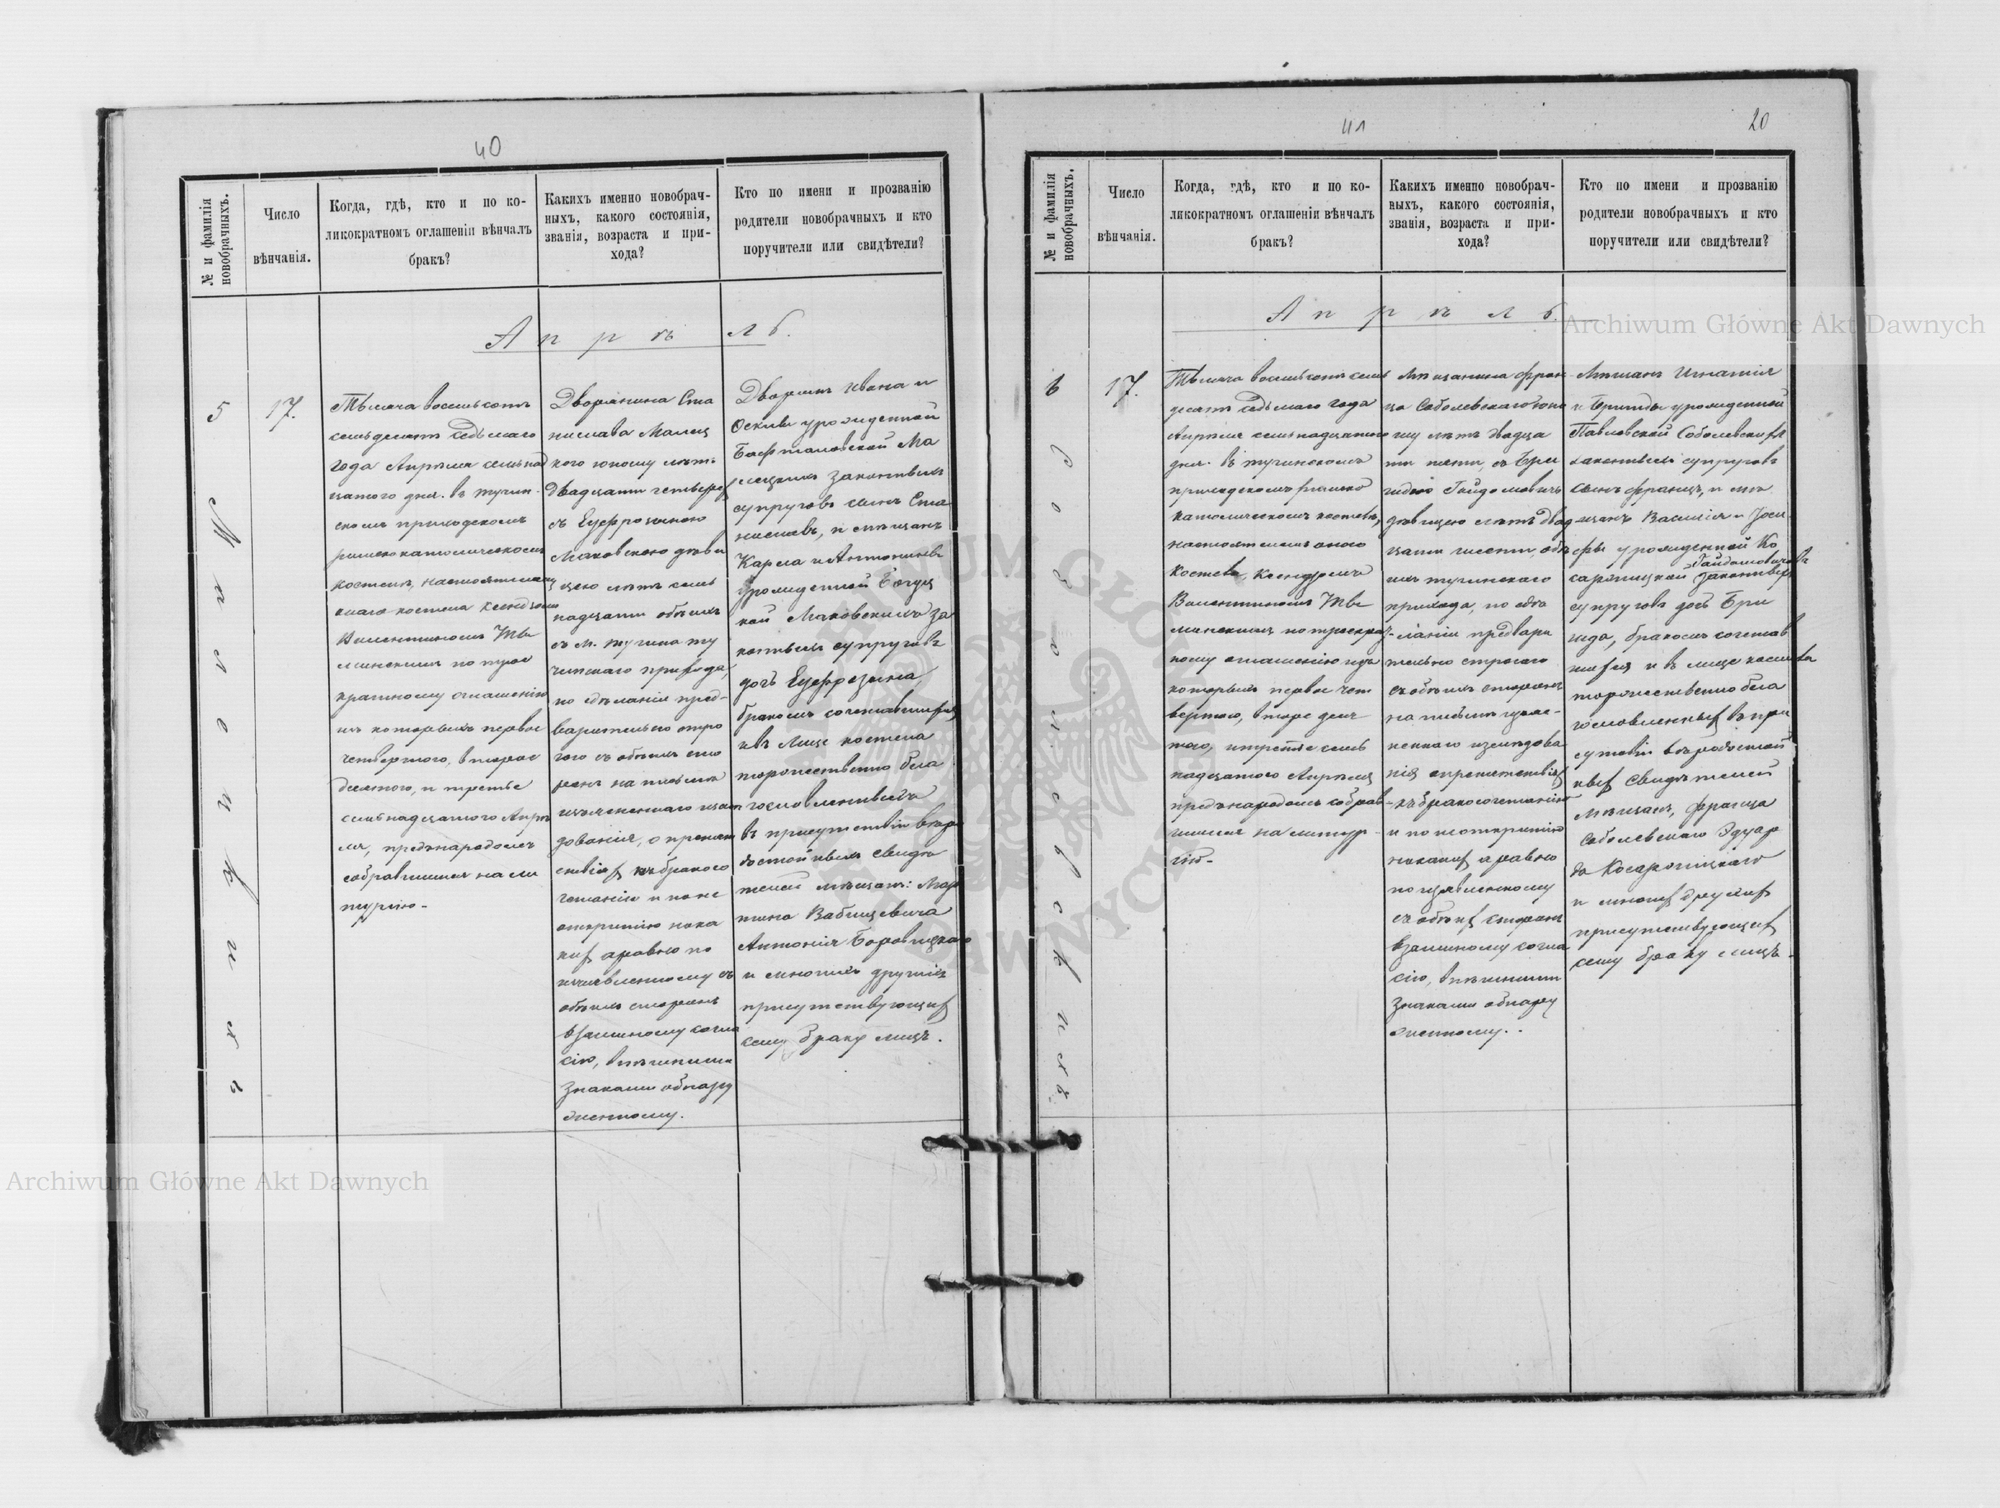 40
№ и фамилія новобрачныхъ.
Число вѣнчанія.
Когда, гдѣ, кто и по ко-
ликократномъ оглашеніи вѣнчалъ
бракъ?
Каихъ именно новобрач-
ныхъ, какого состоянія,
званія, возраста и при-
хода?
Кто по имени и прозванію
родители новобрачныхъ и кто
поручители или свидѣтели?
Апрѣль.
5
17.
Тысяча восемьсотъ
семьдесятъ седьмаго
года Апрѣля семьнад
цатаго дня. въ тучин-
скомъ приходскомъ
римско католическомъ
костелѣ,
костела ксендзомъ
Валентиномъ
по трое
кратному оглашенію
изъ которыхъ первое
четвертаго, второе
десятаго, и третье
семьнадцатаго Апрѣ
ля, предъ народомъ
собравшимся на ли
тургію.
Дворянина Ста
нислава Малец
кого юношу лѣтъ
двадцати четырех
съ Еуфрозиною
Маковскою дѣви
цею лѣтъ семь
надцати обоихъ
съ м. Тучина ту
чинскаго прихода,
по сдѣланіи пред-
варительно стро
гого съ обоихъ сто
ронъ на письмѣ
дованія, о препят
ствіях къ бракосо
четанію и по не
открытію ника
ких а равно по
изъявленному съ
обоихъ сторонъ
взаимному согла
сію, внѣшними
знаками обнару
женному.
Дворянъ Ивана и
урожденной
Ма
лецкихъ законныхъ
супруговъ сынъ Ста
ниславъ, и мѣщанъ
Карла и Антонины
урожденной
Маковскихъ за
конныхъ супруговъ
дочь Еуфрозина,
бракомъ сочетавшихся
и въ лице костела
торжественно бла
гословленныхъ
въ присутствіи вѣро
достойныхъ свидѣ
телей мѣщанъ: Мар
тина
Антонія Боровицкаго
и многихъ другихъ
присутствующих
сему браку лицъ.
41
20
№ и фамилія новобрачныхъ.
Число вѣнчанія.
Когда, гдѣ, кто и по ко-
ликократномъ оглашеніи вѣнчалъ
бракъ?
Каихъ именно новобрач-
ныхъ, какого состоянія,
званія, возраста и при-
хода?
Кто по имени и прозванію
родители новобрачныхъ и кто
поручители или свидѣтели?
Апрѣль.
6
Соболевскихъ.
17.
Тысяча восемьсотъ семь
десятъ седьмаго года
Апрѣля семьнадцатаго
дня. въ тучинскомъ
приходскомъ римско
католическомъ костелѣ,
настоятелемъ онаго
костела, Ксендзомъ
Валентиномъ
по троекрат-
ному оглашенію изъ
которыхъ первое чет
вертаго, второе деся
таго, и третье семь
надцатаго Апрѣля
предъ народомъ собрав-
шимся на литур-
гію.
Мѣщанина Фран
ца Соболевскаго юно
шу лѣтъ двадца
ти пяти, съ Бри
гидою Гайдамовичъ
дѣвицею лѣтъ двад
цати шести, обо
ихъ тучинскаго
прихода, по сдѣ
ланіи предвари
тельно строгаго
съ обоихъ сторонъ
на письмѣ
изслѣдова
нія о препятствіях
къ бракосочетанію
и по неоткрытію
никаких а равно
по изъявленному
съ обоих сторонъ
взаимному согла
сію, внѣшними
знаками обнару
женному.
Мѣщанъ Игнатія
и Бригиды урожденной
Павловской Соболевских
законныхъ супруговъ
сынъ Францъ, и мѣ
щанъ Василія и Іози
фы урожденной Ко
Гайдамовичовъ
законныхъ
супруговъ дочь Бри
гида, бракомъ сочетав
шихся и въ лице костела
торжественно бла
гословленных въ при
сутствіи вѣродостой
ных свидѣтелей
мѣщанъ, Франца
Соболевскаго Эдуар
да
и многих других
присутствующих
сему браку лицъ.
Archiwum Główne Akt Dawnych
Archiwum Główne Akt Dawnych